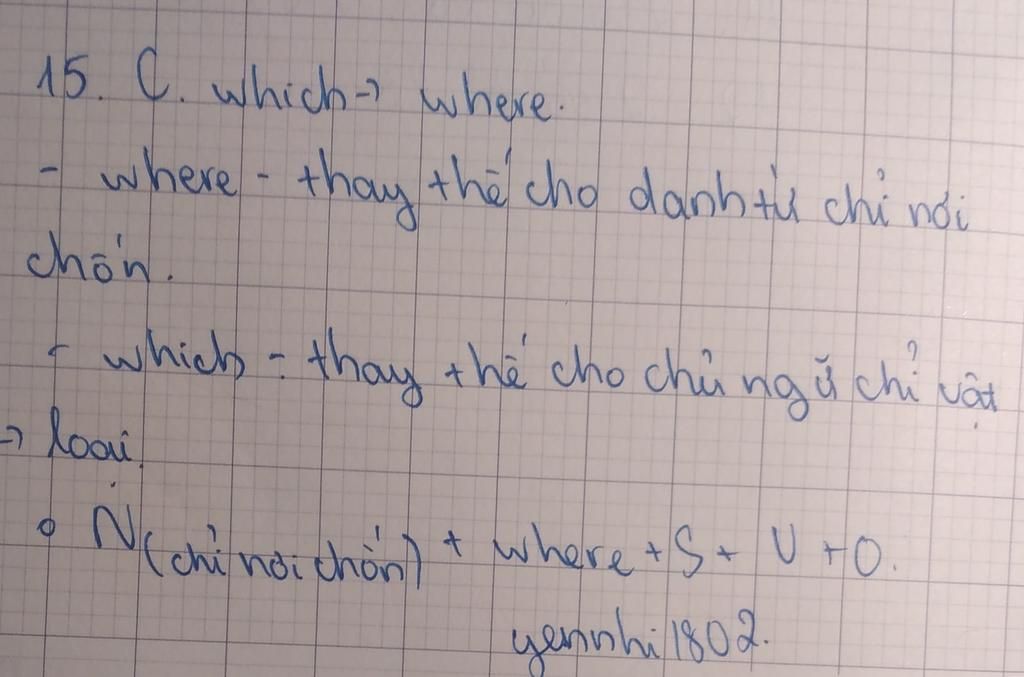 15. C. which → where.
- where - thay thế cho danh từ chỉ nơi
chốn.
- which - thay thế cho chủ ngữ chỉ vật
→ loại.
o N (chỉ nơi chốn) + where + S + V + O.
yennhi1802.